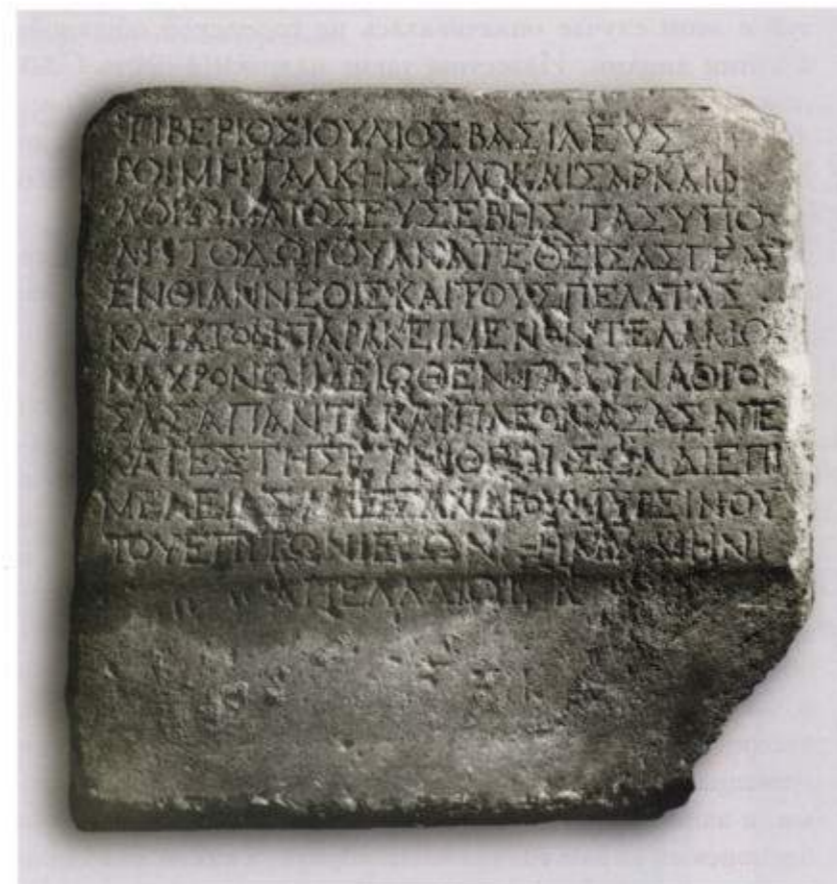 ΤΙΒΕΡΙΟΣΙΟΥΛΙΟΣΒΑΣΙΛΕΥΣ
ΡΟΙΜΗΤΑΛΚΗΣΦΙΛΟΚΑΙΣΑΡΚΑΙΦΙ
ΛΟΡΩΜΑΙΟΣΕΥΣΕΒΗΣΤΑΣΥΠΟ
ΛΗΤΟΔΩΡΟΥΑΝΑΤΕΘΕΙΣΑΣΓΕΑΣ
ΕΝΘΙΑΝΝΕΟΙΣΚΑΙΤΟΥΣΠΕΛΑΤΑΣ
ΚΑΤΑΤΟΝΠΑΡΑΚΕΙΜΕΝΟΝΤΕΛΑΜΩ
ΝΑΧΡΟΝΩΙΜΕΙΩΘΕΝΤΑΣΥΝΑΘΡΟΙ
ΣΑΣΑΠΑΝΤΑΚΑΙΠΛΕΟΝΑΣΑΣΑΠΕ
ΚΑΤΕΣΤΗΣΕΤΗΙΘΕΩΙΣΩΑΔΙΕΠΙ
ΜΕΛΕΙΑΣΑΛΕΞΑΝΔΡΟΥΜΥΡΕΙΝΟΥ
ΤΟΥΕΠΙΤΩΝΙΕΡΩΝ ΜΗΝΙ
ΑΠΕΛΛΑΙΩΙ Κ